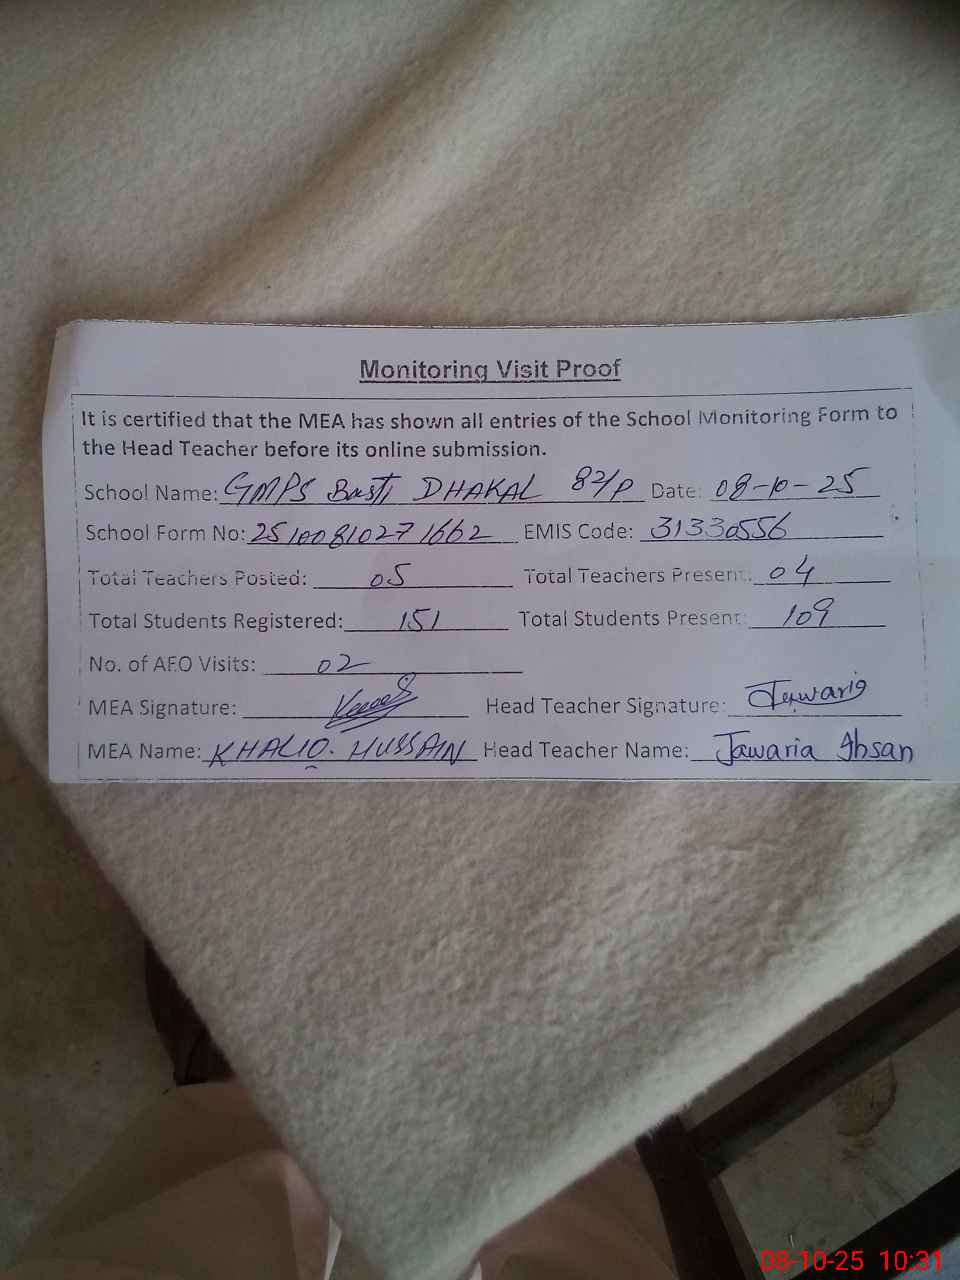 Monitoring Visit Proof
It is certified that the MEA has shown all entries of the School Monitoring Form to
the Head Teacher before its online submission.
School Name: GMPS Basti DHAKAL 82/P Date: 08-10-25
School Form No: 25100810271662 EMIS Code: 31330556
Total Teachers Posted: 05 Total Teachers Present: 04
Total Students Registered: 151 Total Students Present: 109
No. of AEO Visits: 02
MEA Signature: Head Teacher Signature: Jawaria
MEA Name: KHALID. HUSSAIN Head Teacher Name: Jawaria Ahsan
08-10-25 10:31